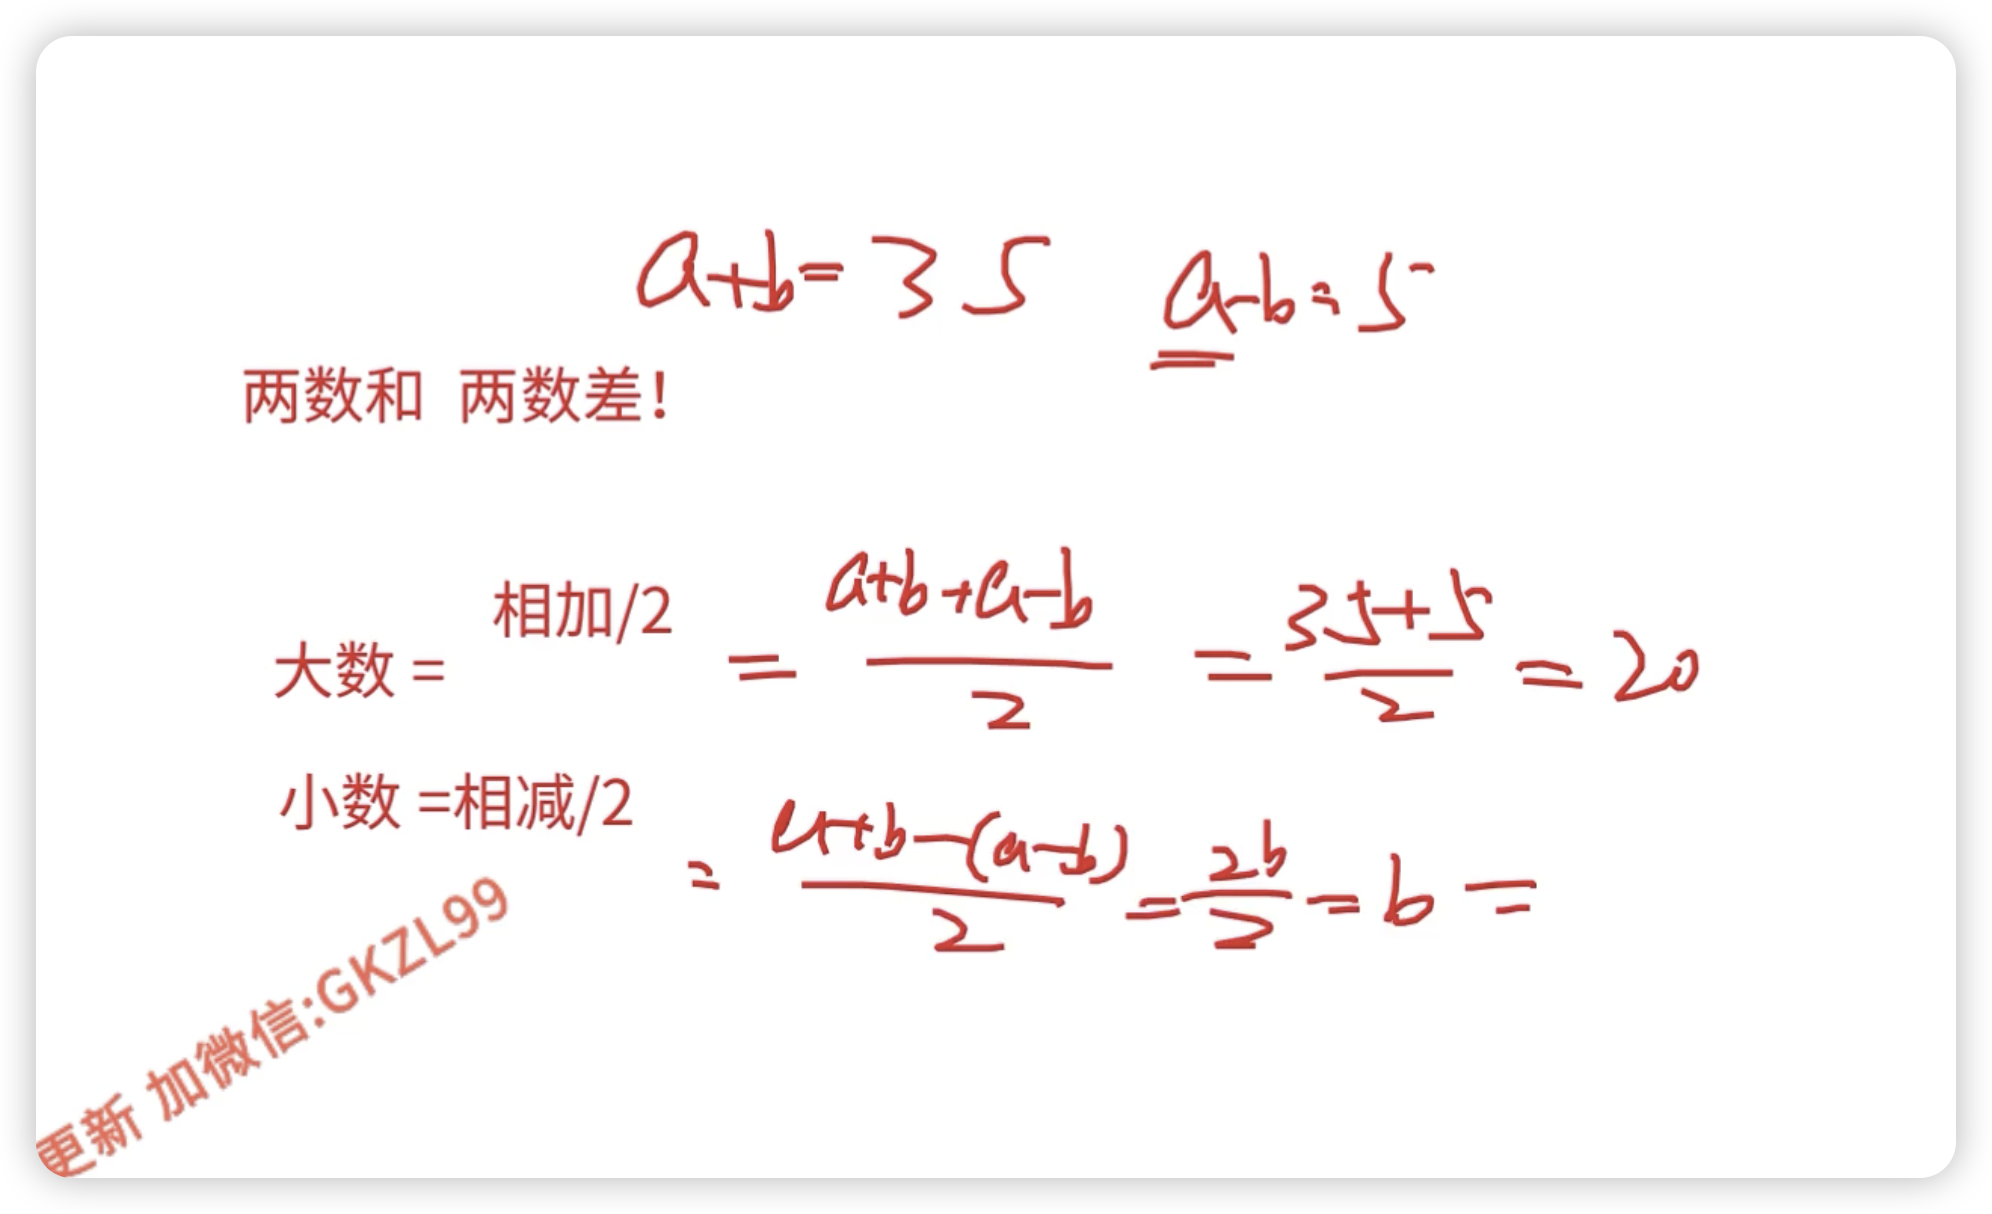 a+b=35 a-b=5
两数和 两数差!
大数= 相加/2 = (a+b+a-b)/2 = (35+5)/2 = 20
小数=相减/2
= (a+b-(a-b))/2 = 2b/2 = b =
更新 加微信:GKZL99